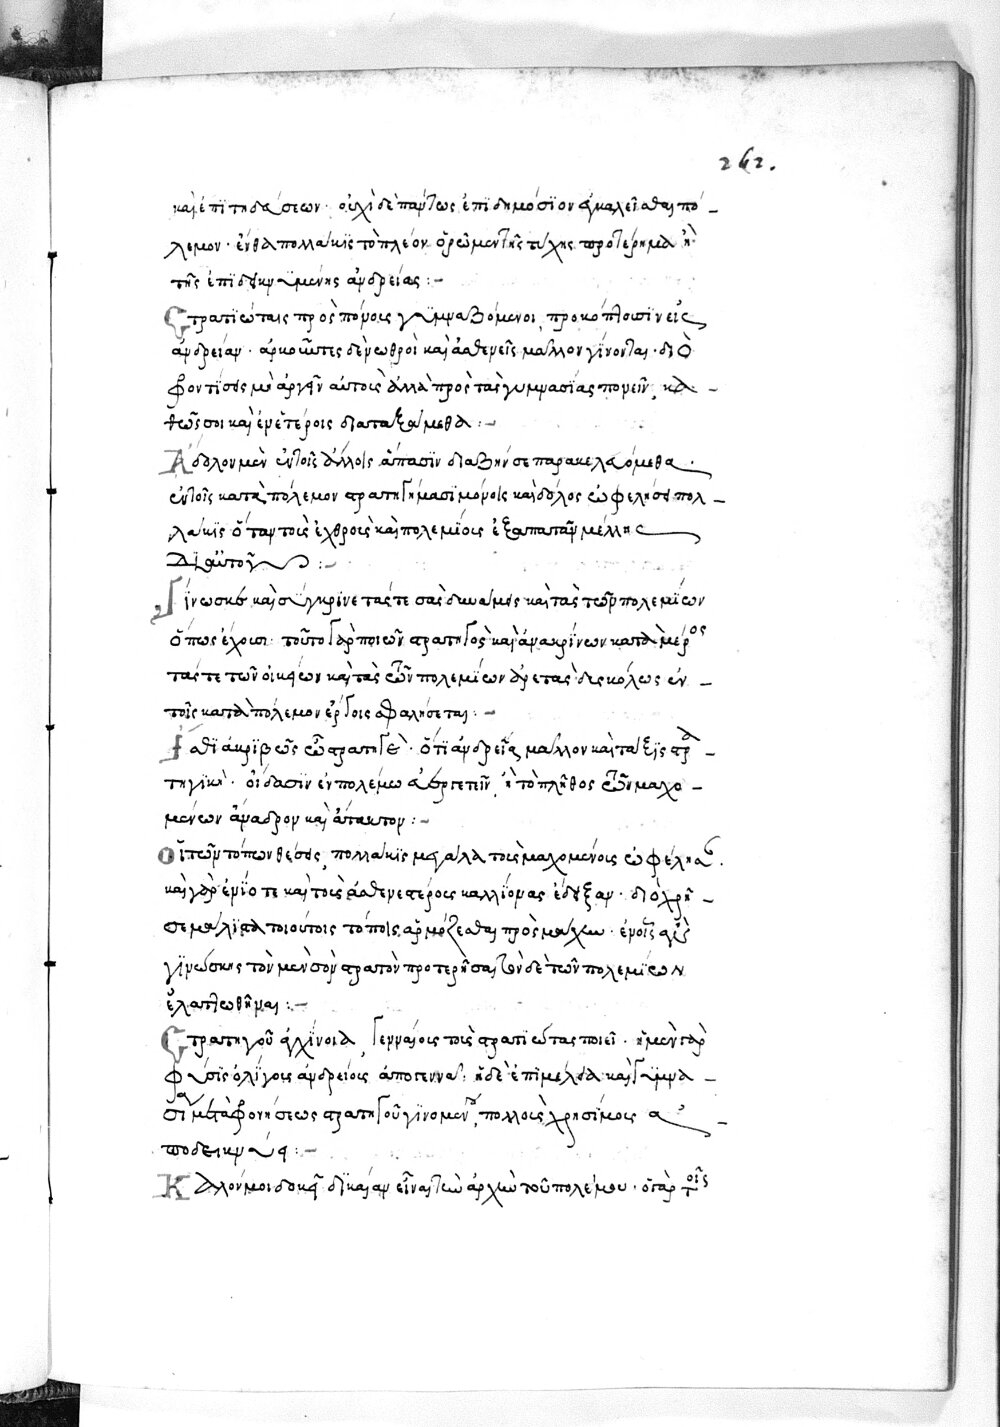 262.
καὶ ἐπιτηδεύσεων· οὐχὶ δὲ πάντως ἐπὶ δημόσιον ἐκκαλεῖσθαι πό-
λεμον· ἔνθα πολλάκις τὸ πλέον ὁρῶμεν τῆς τύχης προτέρημα ἢ
τῆς ἐπιδεικνυμένης ἀνδρείας:-
Στρατιῶται πρὸς πόνοις γυμναζόμενοι, προκόπτουσιν εἰς
ἀνδρείαν· ἀργοῦντες δὲ νωθροὶ καὶ ἀσθενεῖς μᾶλλον γίνονται· διὸ
φρόντισον μὴ ἀργεῖν αὐτοὺς ἀλλὰ πρὸς τὰς γυμνασίας πονεῖν, κα-
θώς σοι καὶ ἐν ἑτέροις διαταξάμεθα:-
Ἄδολον μὲν ἐν τοῖς ἄλλοις ἅπασιν διαζῆν σε παρακελευόμεθα·
ἐν τοῖς κατὰ πόλεμον στρατηγήμασι μόνοις καὶ δόλος ὠφελήσει πολ-
λάκις ὅταν τοὺς ἐχθροὺς καὶ πολεμίους ἐξαπατᾶν μέλλῃς
δι αὐτοῦ:-
Γίνωσκε καὶ σύγκρινε τάς τε σὰς δυνάμεις καὶ τὰς τῶν πολεμίων
ὅπως ἔχουσι· τοῦτο γὰρ ποιῶν στρατηγὸς καὶ ἀνακρίνων κατὰ μέρος
τάς τε τῶν οἰκείων καὶ τὰς τῶν πολεμίων ἀρετὰς δυσκόλως ἐν
τοῖς κατὰ πόλεμον ἔργοις σφαλήσεται:-
Ἴσθι ἀκριβῶς ὦ στρατηγέ· ὅτι ἀνδρεία μᾶλλον καὶ τάξις στρα-
τηγικὴ· οἴδασιν ἐν πολέμῳ εὐεργετεῖν, ἢ τὸ πλῆθος τῶν μαχο-
μένων ἄνανδρον καὶ ἄτακτον:-
Οἱ τῶν τόπων θέσεις, πολλάκις μεγάλα τοὺς μαχομένους ὠφέλησαν.
καὶ γὰρ ἐνίοτε καὶ τοὺς ἀσθενεστέρους καλλίονας ἔδειξαν· διὸ χρή
σε μάλιστα τοιούτοις τόποις ἁρμόζεσθαι πρὸς μάχην· ἐν οἷς
γινώσκῃς τὸν μὲν σὸν στρατὸν προτερῆσαι τὸν δὲ τῶν πολεμίων
ἐλαττωθῆναι:-
Στρατηγοῦ ἀγχίνοια, γενναίους τοὺς στρατιώτας ποιεῖ· ἡ μὲν γὰρ
φύσις ὀλίγους ἀνδρείους ἀπογεννᾷ· ἡ δὲ ἐπιμέλεια καὶ γυμνα-
σία μετὰ φρονήσεως στρατηγοῦ γινομένη, πολλοὺς χρησίμους α-
ποδείκνυσι:-
Καλόν μοι δοκεῖ δικαίαν εἶναι τὴν ἀρχὴν τοῦ πολέμου· ὁ γὰρ τοῖς